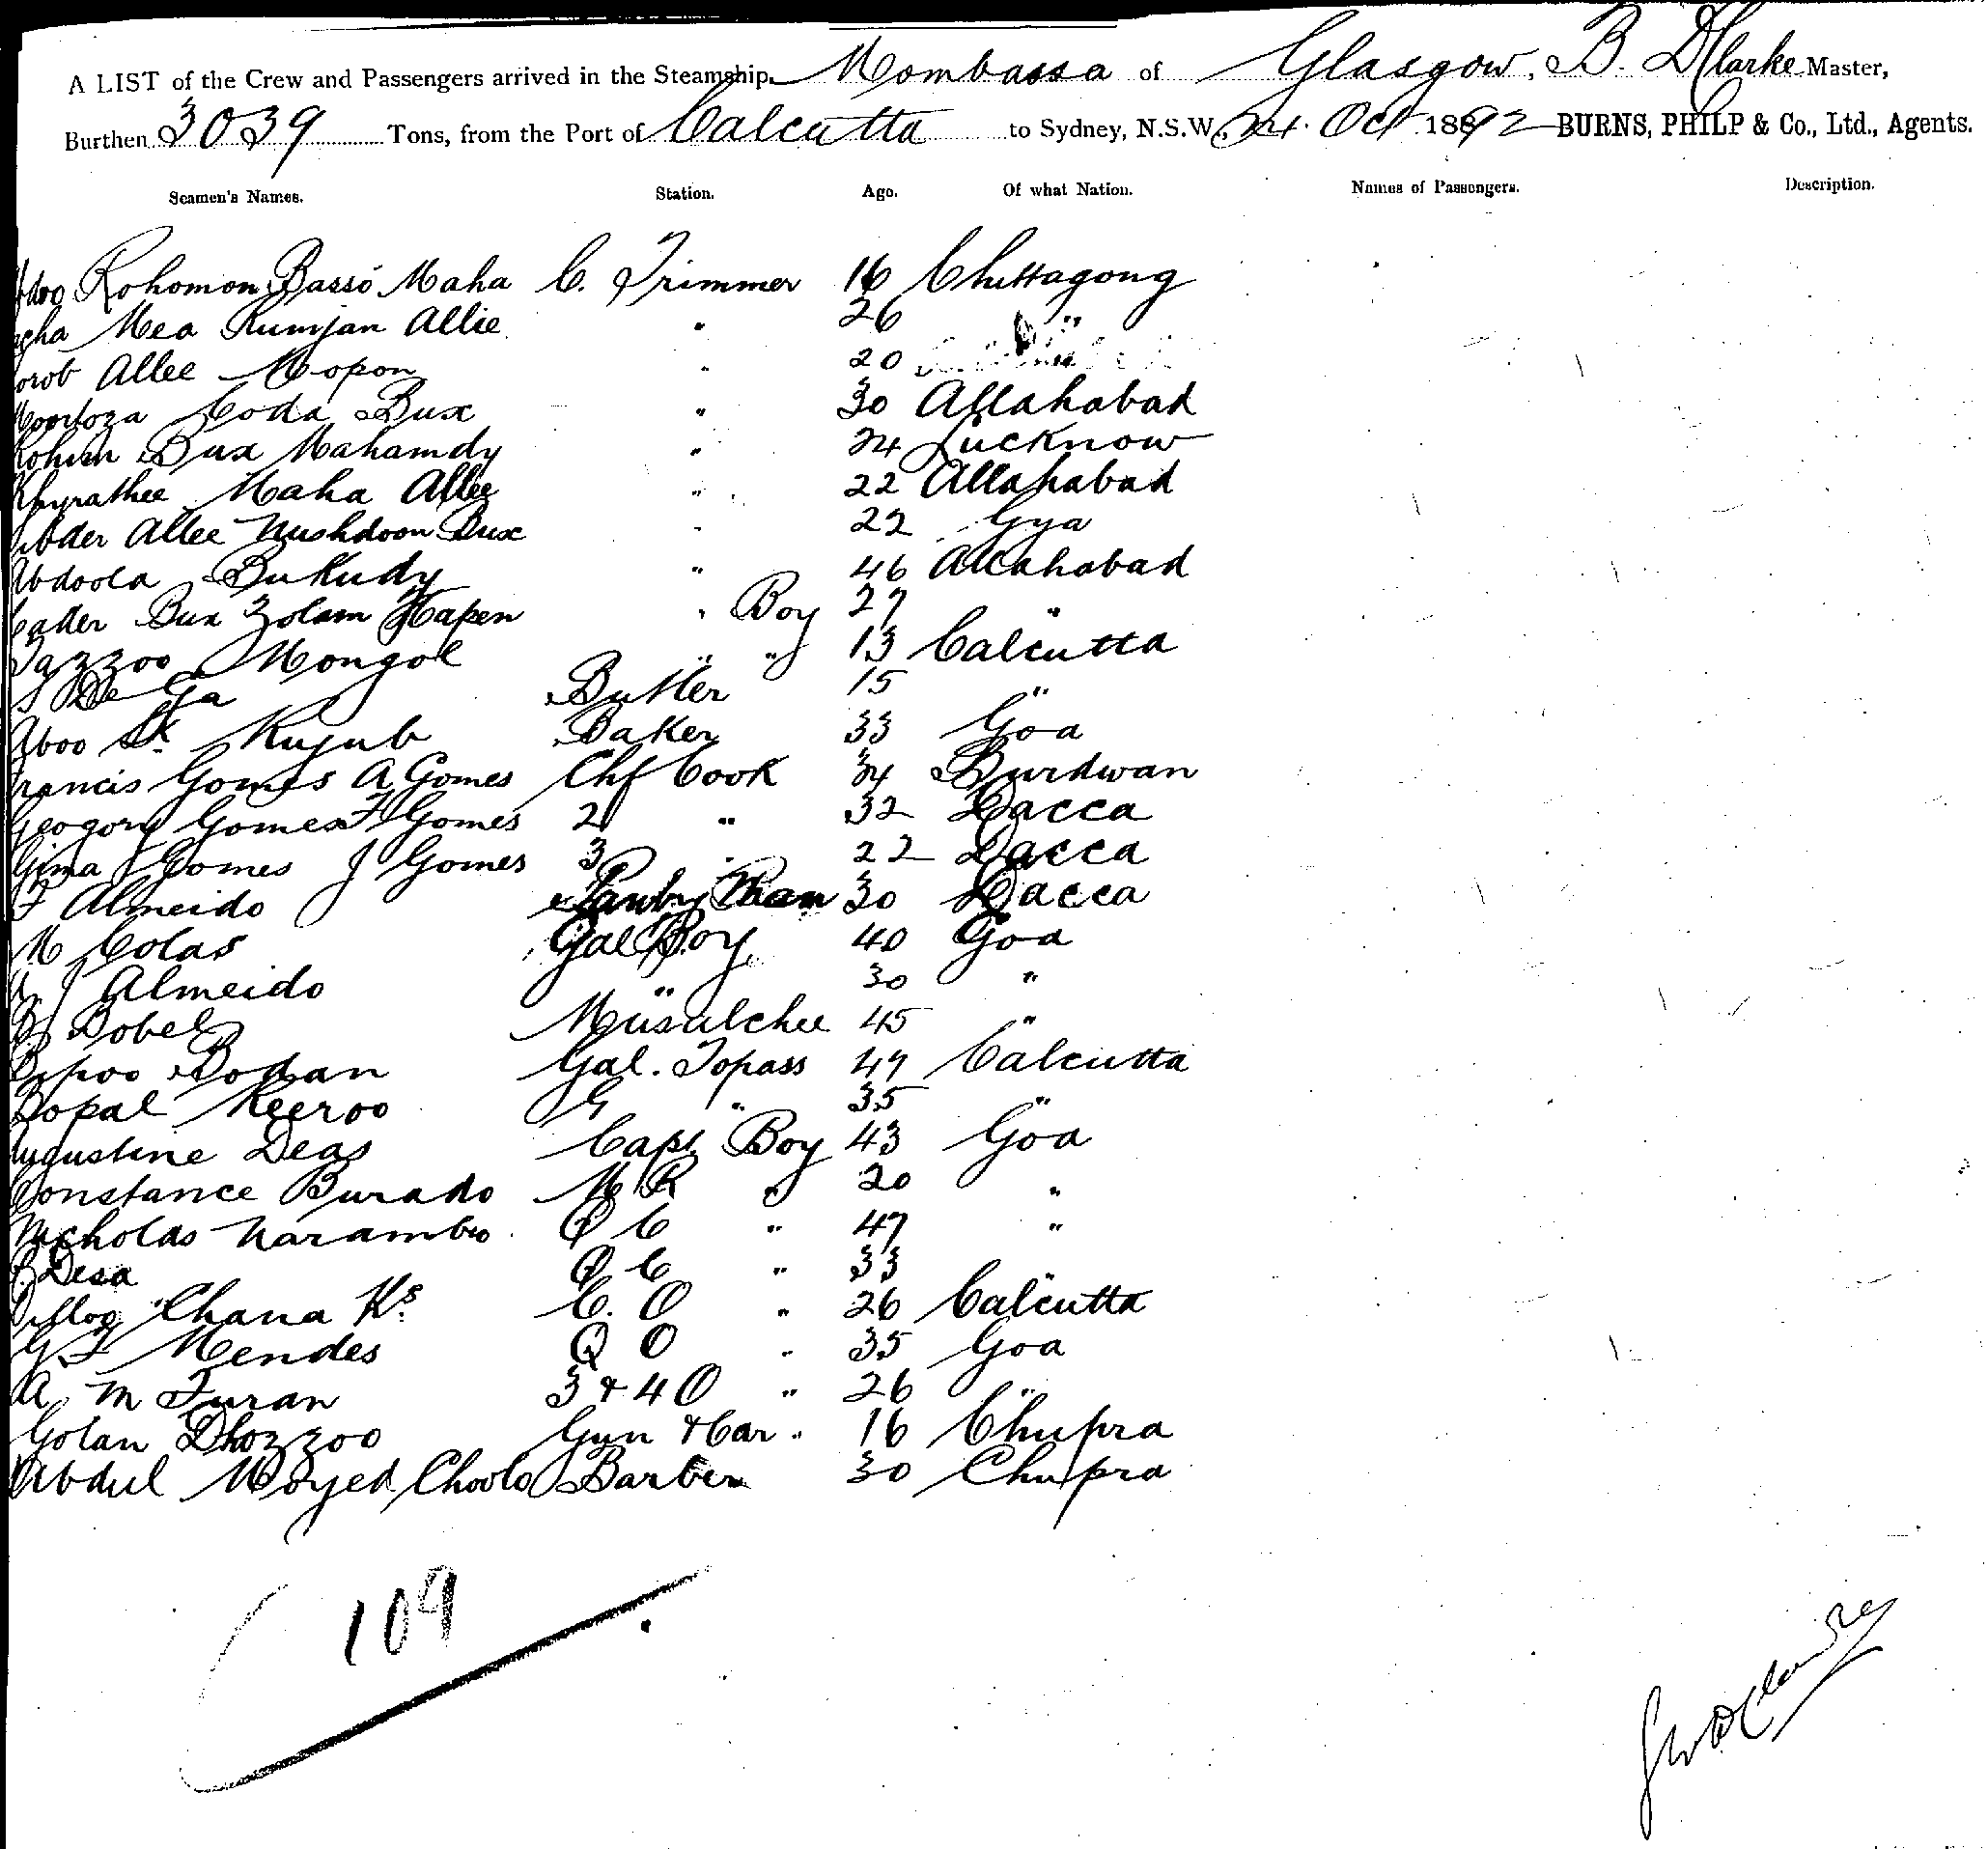 A LIST of the Crew and Passengers arrived in the Steamship, Mombassa of Glasgow, B. D Clarke Master,
Burthen 3039 Tons, from the Port of Calcutta to Sydney, N.S.W., 24. Oct 1892 BURNS, PHILP & Co., Ltd., Agents.
Seamen's Names. Station. Age. Of what Nation. Names of Passengers. Description.
Rohomon Basso Maha C. Trimmer 16 Chittagong
Mea Rumjan Allie " 26 "
Allee Mopon " 20
Moortoza Coda Bux " 30 Allahabad
Rohim Bux Mahamdy " 24 Lucknow
Khyrathee Maha Allee " 22 Allahabad
Allee Nushdoon Bux " 22 Gya
Abdoola Bukudy " 46 Allahabad
Cader Bux Golam Hapen " Boy 27 "
Mongol " " 13 Calcutta
S De Ga Butler 15 "
Aboo Sk Rujub Baker 33 Goa
Francis Gomes A Gomes Chf Cook 34 Burdwan
Geogory Gomes F Gomes 2 " 32 Dacca
Gima J Gomes J Gomes 3 " 22 Dacca
F Almeido Pantry Man 30 Dacca
M Colas Gal Boy 40 Goa
J Almeido " 30 "
Bobel Musalchee 45 "
Bodhan Gal. Topass 47 Calcutta
Gopal Keeroo G " 35 "
Augustine Deas Capt Boy 43 Goa
Constance Burado M R " 20 "
Nicholas Narambo Q C " 47 "
Desa Q C " 33 "
Chana Ks C. O " 26 Calcutta
G F Mendes Q O " 35 Goa
A M Turan 3 & 4 O " 26 "
Golan Dhozzoo Gun & Car " 16 Chupra
Abdul Moyed Choolo Barber 30 Chupra
109